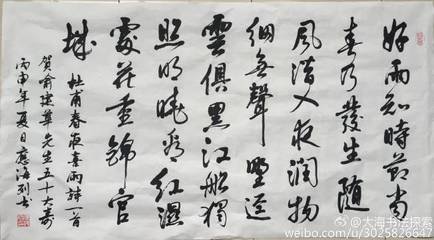 好雨知時節當
春乃發生隨
風潛入夜潤物
細無聲野逕
雲俱黑江船獨
照明曉看紅濕
處花重錦官
城
杜甫春夜喜雨詩一首
賀喻先生五十大壽
丙申年夏日應海书
@大海书法探索
weibo.com/u/3025826647